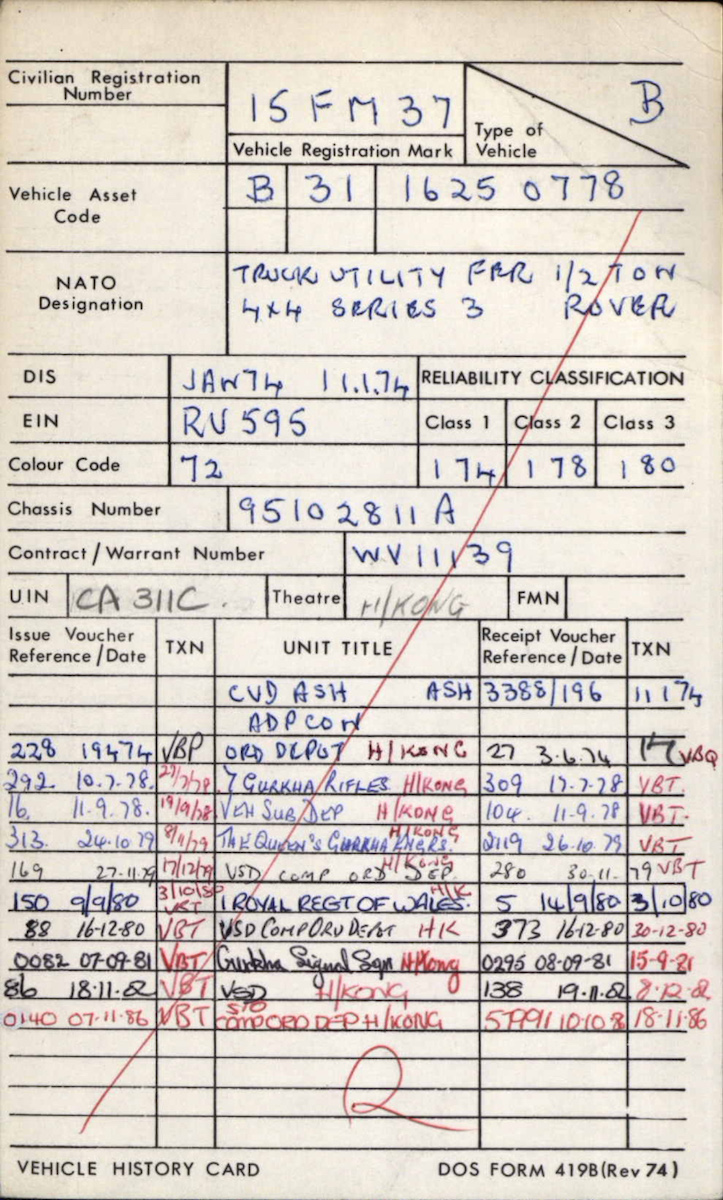 Civilian Registration Number
15 FM 37
Vehicle Registration Mark
Type of Vehicle
B
Vehicle Asset Code
B 31 1625 0778
NATO Designation
TRUCK UTILITY FFR 1/2 TON
4x4 SERIES 3 ROVER
DIS JAN 74 11.1.74 RELIABILITY CLASSIFICATION
EIN RV 595 Class 1 Class 2 Class 3
Colour Code 72 1 74 1 78 1 80
Chassis Number 95102811A
Contract/Warrant Number WV11139
UIN CA 311C. Theatre H/KONG FMN
Issue Voucher Reference/Date TXN UNIT TITLE Receipt Voucher Reference/Date TXN
CVD ASH ASH 3388/196 11 1 74
ADPCON
228 19474 VBP ORD DEPOT H/KONG 27 3.6.74 VBQ
292. 10.7.78. 27/7/78 7 GURKHA RIFLES H/KONG 309 17.7.78 VBT.
16. 11.9.78. 19/9/78 VEH SUB DEP H/KONG 104. 11.9.78 VBT.
313. 24.10.79 THE QUEEN'S GURKHA ENGRS. H/KONG 2119 26.10.79 VBT
169 27.11.79 17/12/79 VSD COMP ORD DEP. H/KONG 280 30.11.79 VBT
150 9/9/80 3/10/80 VBT 1 ROYAL REGT OF WALES. H/K 5 14/9/80 3/10/80
88 16-12-80 VBT VSD COMP ORD DEPOT HK 373 16-12-80 30-12-80
0082 07-09-81 VBT Gurkha Signal Sqn H/Kong 0295 08-09-81 15-9-81
86 18.11.82 VBT VSD H/KONG 138 19.11.82 8.12.82
0140 07.11.86 VBT STO COMP ORD DEP H/KONG 10.10.8 18-11-86
VEHICLE HISTORY CARD DOS FORM 419B (Rev 74)